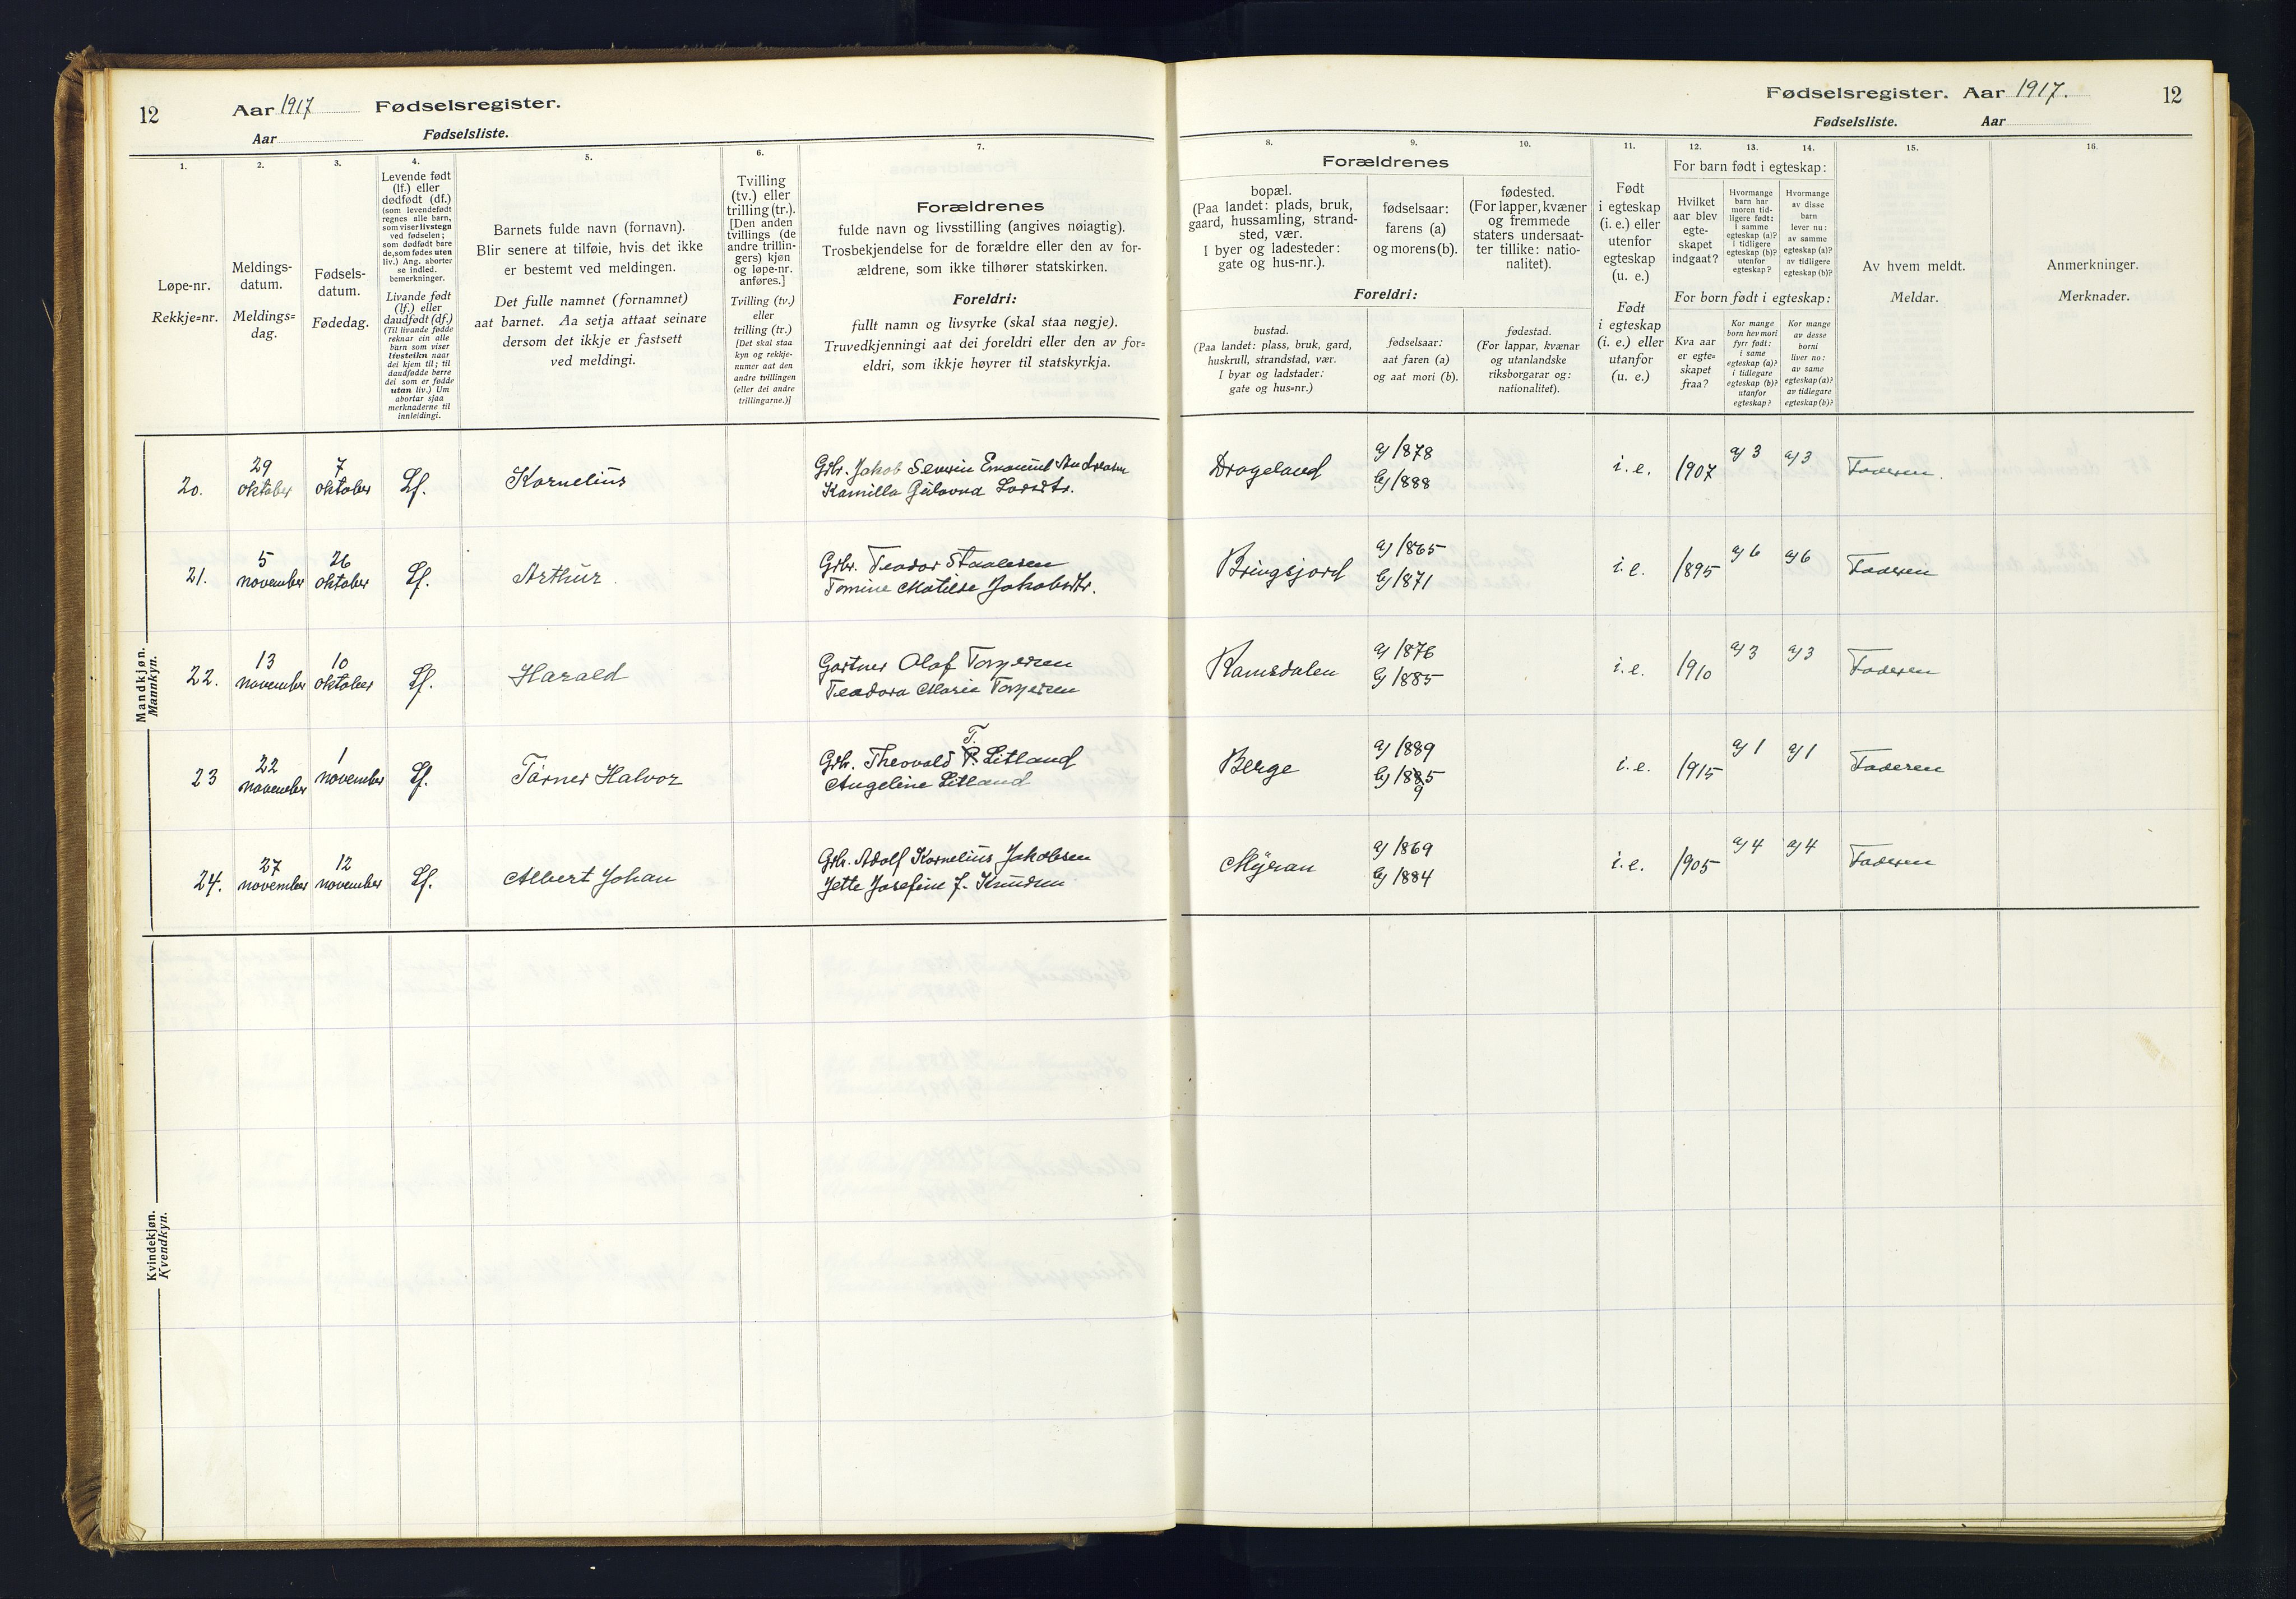 12 Aar 1917 Fødselsregister.
Aar Fødselsliste.
1.
2.
3.
4.
5.
6.
7.
Løpe-nr.
Rekkje=nr.
Meldings-
datum.
Meldings=
dag.
Fødsels-
datum.
Fødedag.
Levende født
(lf.) eller
dødfødt (df.)
(som levendefødt
regnes alle barn,
som viser livstegn
ved fødselen;
som dødfødt bare
de, som fødes uten
liv.) Ang. aborter
se indled.
bemerkninger.
Livande født
(lf.) eller
daudfødt (df.)
(Til livande fødde
reknar ein alle
barn som viser
livsteikn naar
dei kjem til; til
daudfødde berre
dei som er fødde
utan liv.) Um
abortar sjaa
merknaderne til
innleidingi.
Barnets fulde navn (fornavn).
Blir senere at tilføie, hvis det ikke
er bestemt ved meldingen.
Det fulle namnet (fornamnet)
aat barnet. Aa setja attaat seinare
dersom det ikkje er fastsett
ved meldingi.
Tvilling
(tv.) eller
trilling (tr.).
[Den anden
tvillings (de
andre trillin-
gers) kjøn
og løpe-nr.
anføres.]
Tvilling (tv.)
eller
trilling (tr.)
[Det skal staa
kyn og rekkje-
numer aat den
andre tvillingen
(eller dei andre
trillingarne.)]
Forældrenes
fulde navn og livsstilling (angives nøiagtig).
Trosbekjendelse for de forældre eller den av for-
ældrene, som ikke tilhører statskirken.
Foreldri:
fullt namn og livsyrke (skal staa nøgje).
Truvedkjenningi aat dei foreldri eller den av for=
eldri, som ikkje høyrer til statskyrkja.
Mandkjøn.
Mannkyn.
20. 29 oktober 7 oktober Lf. Kornelius Grbr. Jakob Severin Emanuel Andreasen
Kamilla Gulovna Larsdtr.
21. 5 november 26 oktober Lf. Arthur. Grbr. Teodor Staalesen
Tomine Matilde Jakobsdtr.
22. 13 november 10 oktober Lf. Harald Gartner Olaf Torjersen
Teodora Marie Torjersen
23 22 november 1 november Lf. Tårner Halvor Grbr. Theovald T. Litland
Angeline Litland
24. 27 november 12 november Lf. Albert Johan Grbr. Adolf Kornelius Jakobsen
Jette Josefine f. Knudsen
Kvindekjøn.
Kvendkyn.
Fødselsregister. Aar 1917. 12
Fødselsliste. Aar
8.
9.
10.
11.
12.
13.
14.
15.
16.
Forældrenes
bopæl.
(Paa landet: plads, bruk,
gaard, hussamling, strand-
sted, vær.
I byer og ladesteder:
gate og hus-nr.).
fødselsaar:
farens (a)
og morens(b).
fødested.
(For lapper, kvæner
og fremmede
staters undersaat-
ter tillike: natio-
nalitet).
Foreldri:
bustad.
(Paa landet: plass, bruk, gard,
huskrull, strandstad, vær.
I byar og ladstader:
gate og hus=nr.)
fødselsaar:
aat faren (a)
og aat mori (b).
fødestad.
(For lappar, kvænar
og utanlandske
riksborgarar og:
nationalitet).
Født
i egteskap
(i. e.) eller
utenfor
egteskap
(u. e.)
Født
i egteskap
(i. e.) eller
utanfor
(u. e.)
For barn født i egteskap:
Hvilket
aar blev
egte-
skapet
indgaat?
Hvormange
barn har
moren tid-
ligere født:
i samme
egteskap (a)?
i tidligere
egteskap (b)?
utenfor
egteskap?
Hvormange
av disse
barn
lever nu:
av samme
egteskap (a)?
av tidligere
egteskap (b)?
For born født i egteskap:
Kva aar
er egte=
skapet
fraa?
Kor mange
born hev mori
fyrr født:
i same
egteskap (a)?
i tidlegare
egteskap (b)?
utanfor
egteskap?
Kor mange
av desse
borni
liver no:
av same
egteskap (a)?
av tidlegare
egteskap (b)?
Av hvem meldt.
Meldar.
Anmerkninger.
Merknader.
Drageland a) 1878 b) 1888 i. e. 1907 a) 3 a) 3 Faderen.
Bringsjord a) 1865 b) 1871 i. e. 1895 a) 6 a) 6 Faderen
Ramsdalen a) 1876 b) 1885 i. e. 1910 a) 3 a) 3 Faderen
Berge a) 1889 b) 1885 9 i. e. 1915 a) 1 a) 1 Faderen
Myran a) 1869 b) 1884 i. e. 1905 a) 4 a) 4 Faderen